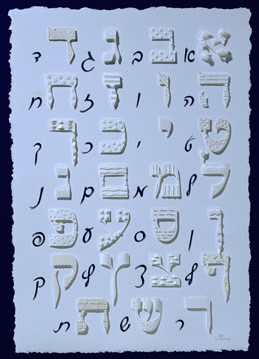 א א ב ב ג ג ד ד
ה ה ו ו ז ז ח ח
ט ט י י כ כ ך ך
ל ל מ מ ם ם נ נ
ן ן ס ס ע ע פ פ
ף ף צ צ ץ ץ ק ק
ר ר ש ש ת ת